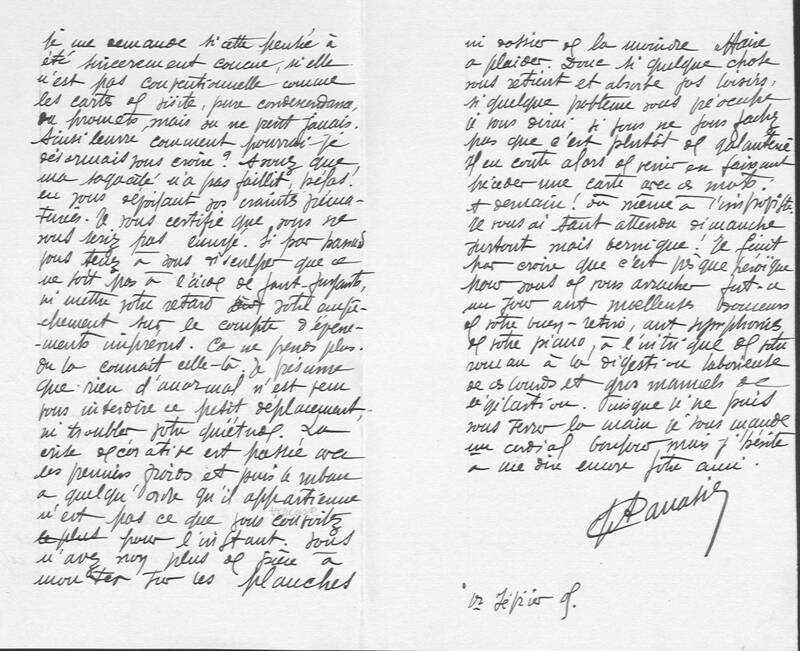 Je me demande si cette pensée a
été sincèrement conçue, si elle
n'est pas conventionnelle comme
les cartes de visite, pure condescendance,
On promet, mais on ne tient jamais.
Ainsi leurré comment pourrai-je
désormais vous croire? Avouez que
ma sagacité n'a pas faillit, hélas!
en vous déposant vos craintes préma-
turées. Je vous certifie que vous ne
vous serez pas ennuyé. Si par hasard
vous tenez à vous disculper que ce
ne soit pas à l'aide de faux-fuyants,
ni mettre votre retard votre empê-
chement sur le compte d'évène-
ments imprévus. Ca ne prends plus.
On la connait celle-là. Je présume
que rien d'anormal n'est venu
vous interdire ce petit déplacement,
ni troubler votre quiétude. La
crise décorative est passée avec
les premiers froids et puis le ruban
a quelqu'ordre qu'il appartienne
n'est pas ce que vous convoitez
le plus pour l'instant. Vous
n'avez non plus de pièce à
monter sur les planches
ni dossier de la moindre affaire
a plaider. Donc si quelque chose
vous retient et absorbe vos loisirs,
si quelque problème vous préoccupe
je vous dirai si vous ne vous fachez
pas que c'est plutôt de galanterie
Il en coûte alors de venir en faisant
précéder une carte avec ces mots:
A demain! ou même à l'improviste.
Je vous ai tant attendu dimanche
surtout mais bernique! Je finit
par croire que c'est presque héroïque
pour vous de vous arracher fut-ce
un jour aux moelleuses douceurs
de votre buen-retiro, aux symphonies
de votre piano, à l'intrigue de votre
roman à la digestion laborieuse
de ces lourds et gros manuels de
législation. Puisque je ne puis
vous serrer la main je vous mande
un cordial bonjour mais j'hésite
a me dire encore votre ami.